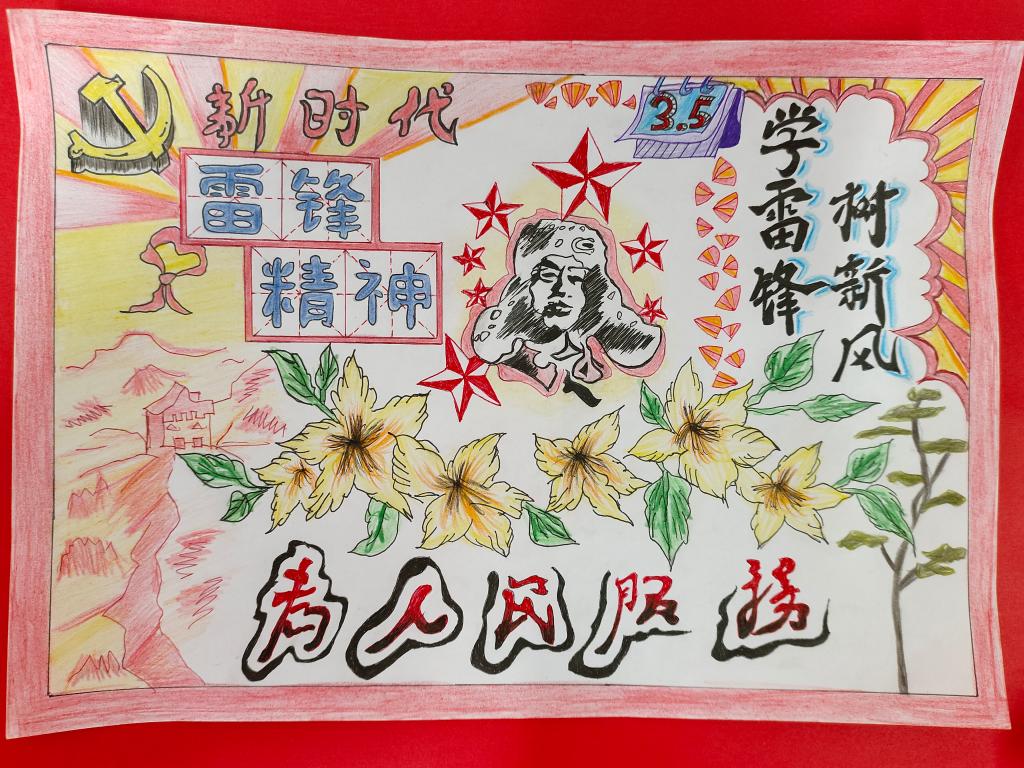 新时代
雷锋
精神
3.5
学雷锋
树新风
为人民服務